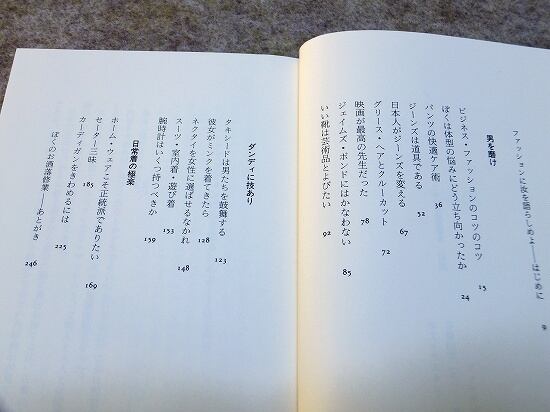 ファッションに汝を語らしめよ――はじめに 9
男を磨け
ビジネス・ファッションのコツのコツ 15
ぼくは体型の悩みにどう立ち向かったか 24
パンツの快適ケア術 36
ジーンズは道具である 52
日本人がジーンズを変える 67
グリース・ヘアとクルーカット 72
映画が最高の先生だった 78
ジェイムズ・ボンドにはかなわない 85
いい靴は芸術品とよびたい 92
ダンディに技あり
タキシードは男たちを鼓舞する 123
彼女がミンクを着てきたら 128
ネクタイを女性に選ばせるなかれ 148
スーツ・室内着・遊び着 153
腕時計はいくつ持つべきか 159
日常着の極楽
ホーム・ウェアこそ正統派でありたい 169
セーター三昧 185
カーディガンをきわめるには 225
ぼくのお洒落修業――あとがき 246